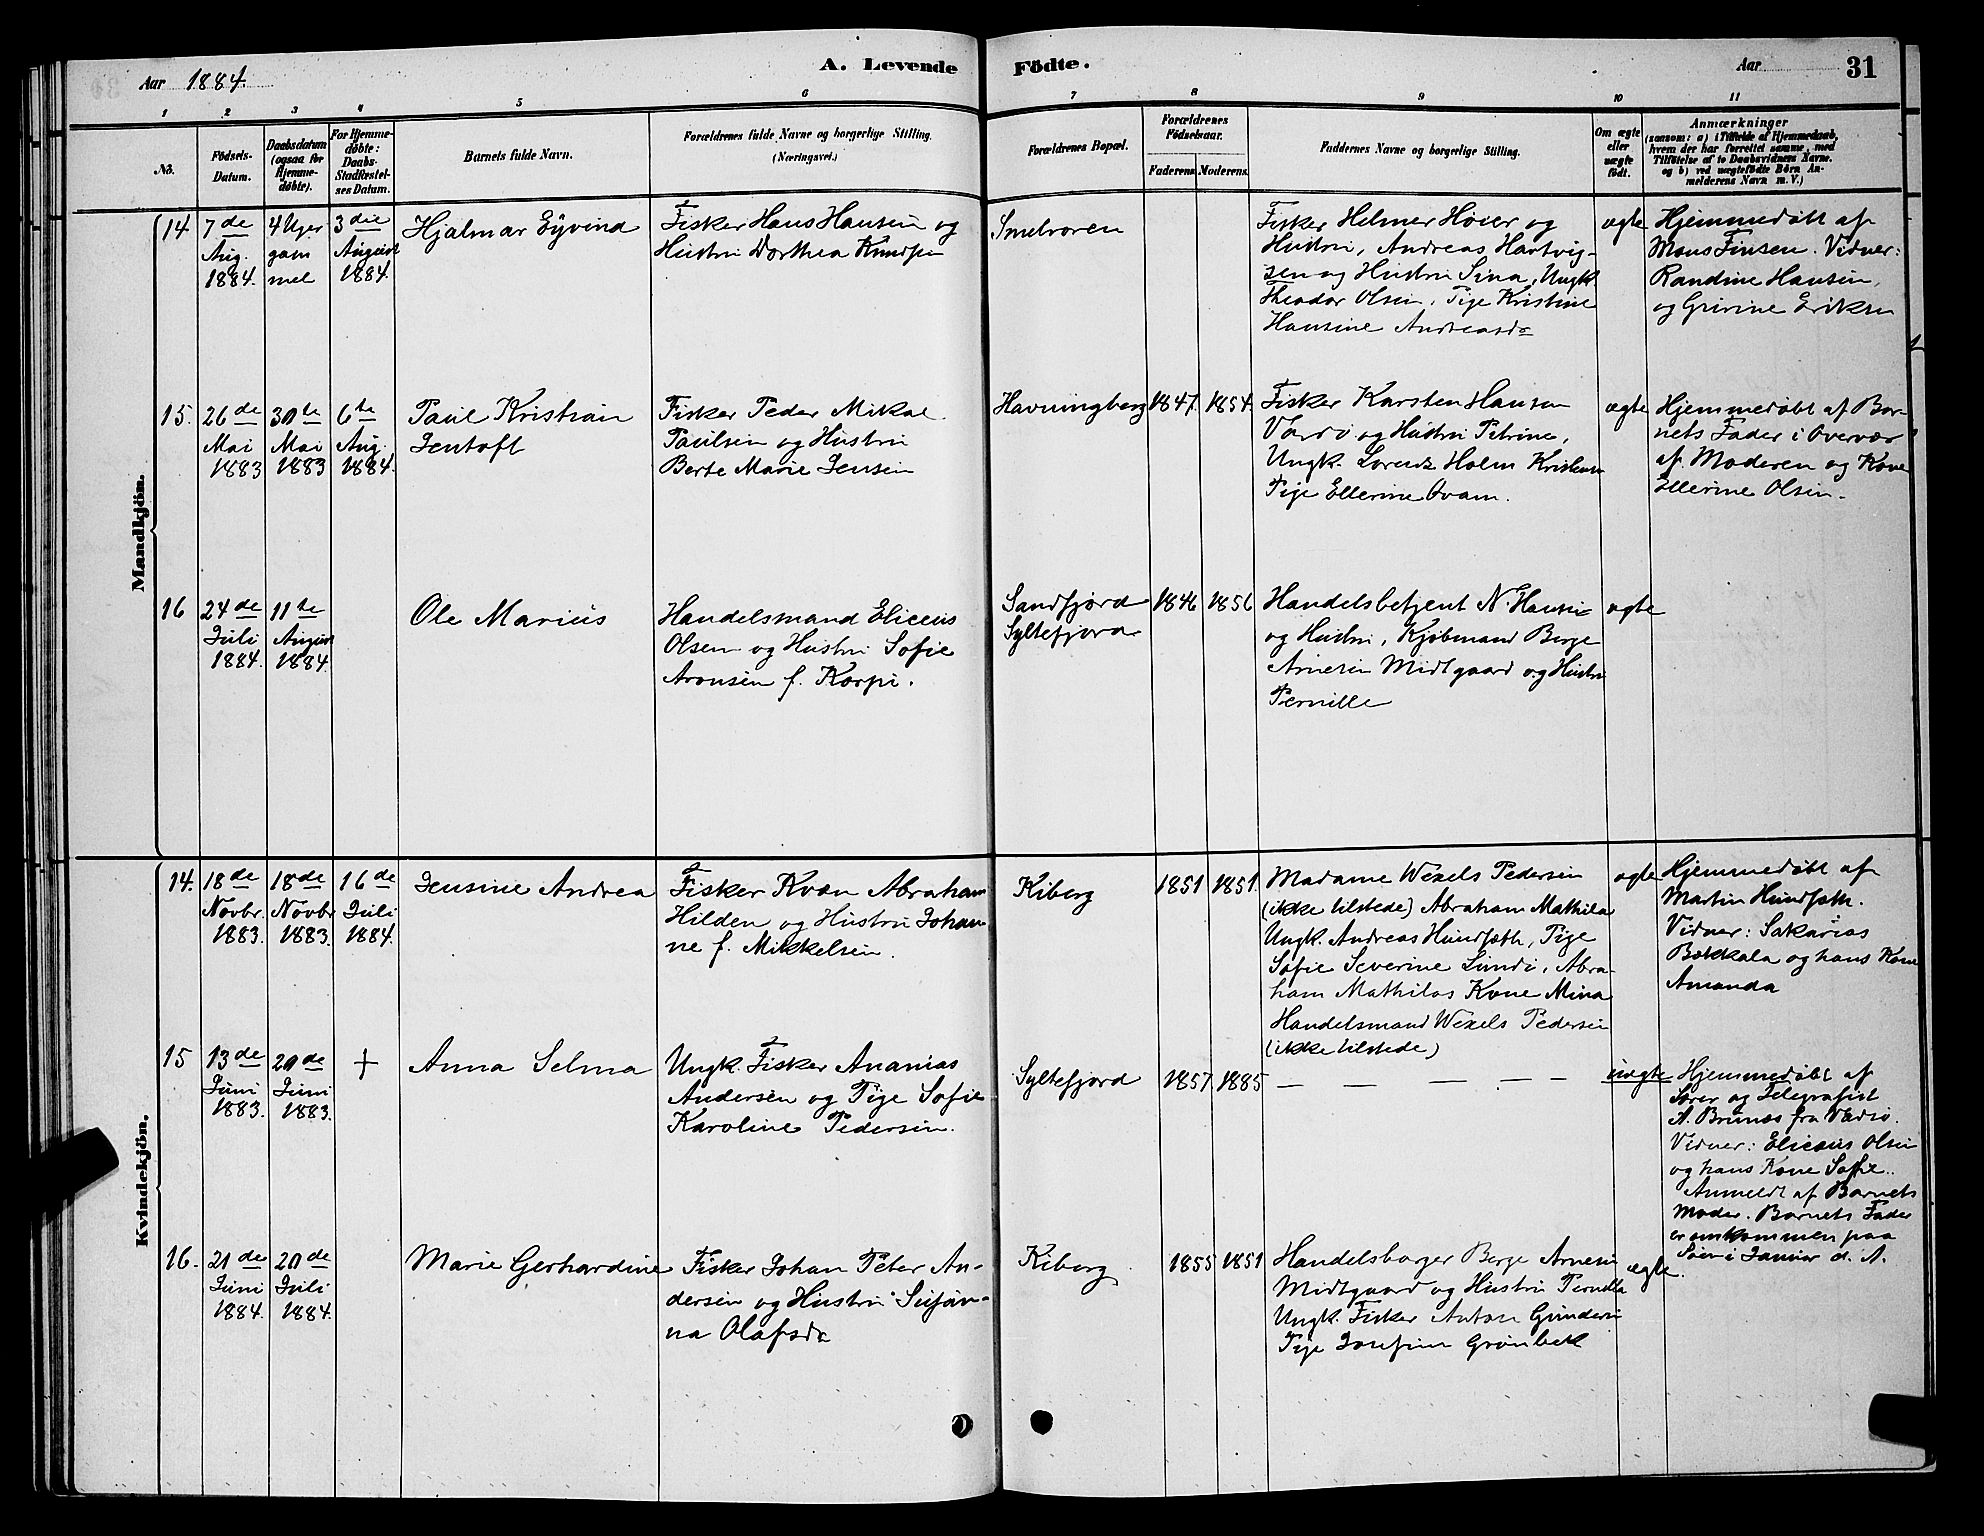 Aar 1884.
A. Levende Fødte.
Aar
31
1 2 3 4 5 6 7 8 9 10 11
No.
Fødsels-
Datum.
Daabsdatum
(ogsaa for
Hjemme-
døbte).
For Hjemme-
døbte:
Daabs-
Stadfæstel-
ses Datum.
Barnets fulde Navn.
Forældrenes fulde Navne og borgerlige Stilling.
(Næringsvei.)
Forældrenes Bopæl.
Forældrenes
Fødselsaar.
Faderens. Moderens.
Faddernes Navne og borgerlige Stilling.
Om ægte
eller
uægte
født.
Anmærkninger
(saasom: a) i Tilfælde af Hjemmedaab,
hvem der har forrettet samme, med
Tilføielse af to Daabsvidners Navne.
og b) ved uægtefødte Børn An-
melderens Navn m. V.)
Mandkjön.
14
7de
Aug.
1884.
4 Uger
gam
mel
3die
August
1884.
Hjalmar Eyvind
Fisker Hans Hansen og
Hustru Dorthea Knudsen
Smelroren
Fisker Helmer Høier og
Hustru, Andreas Hartvig-
sen og Hustru Sina, Ungk.
Theodor Olsen, Pige Kristine
Hansine Andreasdr
ægte
Hjemmedøbt af
Mons Finsen. Vidner:
Randine Hansen,
og Grurine Eriksen
15.
26de
Mai
1883
30te
Mai
1883
6te
Aug.
1884.
Paul Kristian
Jentoft
Fisker Peder Mikal
Paulsen og Hustru
Berte Marie Jensen
Havningberg
1847. 1854.
Fisker Karsten Hansen
Vardø og Hustru Petrine,
Ungk. Lorentz Holm Kristensen
Pige Ellerine Ovam.
ægte
Hjemmedøbt af Bar-
nets Fader i Overvær
af Moderen og Kone
Ellerine Olsen.
16
24de
Juli
1884.
11te
August
1884.
Ole Marius
Handelsmand Eliceus
Olsen og Hustru Sofie
Aronsen f. Korpi.
Sandfjord
Syltefjord
1846 1856
Handelsbetjent N. Hansen
og Hustru, Kjøbmand Berge
Arnesen Midtgaard og Hustru
Pernille
ægte
Kvindekjön.
14.
18de
Novbr.
1883.
18de
Novbr
1883.
16de
Juli
1884.
Jensine Andrea
Fisker Kvæn Abraham
Hilden og Hustru Johan-
ne f. Mikkelsen.
Kiberg
1851 1851.
Madame Wexels Pedersen
(ikke tilstede) Abraham Mathila
Ungk. Andreas Hundsæth, Pige
Sofie Severine Lundi, Abra-
ham Mathilas Kone Mina
Handelsmand Wexels Pedersen
(ikke tilstede)
ægte
Hjemmedøbt af
Martin Hundsæth.
Vidner: Sakarias
Bækkala og hans Kone
Amanda
15
13de
Juni
1883.
20de
Juni
1883.
+
Anna Selma
Ungk. Fisker Ananias
Andersen og Pige Sofie
Karoline Pedersen.
Syltefjord
1857. 1885
— — — — —
uægte
Hjemmedøbt af
Lærer og Telegrafist
A. Brunæs fra Vadsø.
Vidner: Eliceus Olsen
og hans Kone Sofie.
Anmeldt af Barnets
Moder. Barnets Fader
er omkommen paa
Søen i Januar d. A.
16.
21de
Juni
1884.
20de
Juli
1884.
Marie Gerhardine
Fisker Johan Peter An-
dersen og Hustru Susan-
na Olafsdr
Kiberg
1855 1851
Handelsborger Berge Arnesen
Midtgaard og Hustru Pernilla
Ungk. Fisker Anton Gundersen
Pige Josefine Grønbek
ægte.